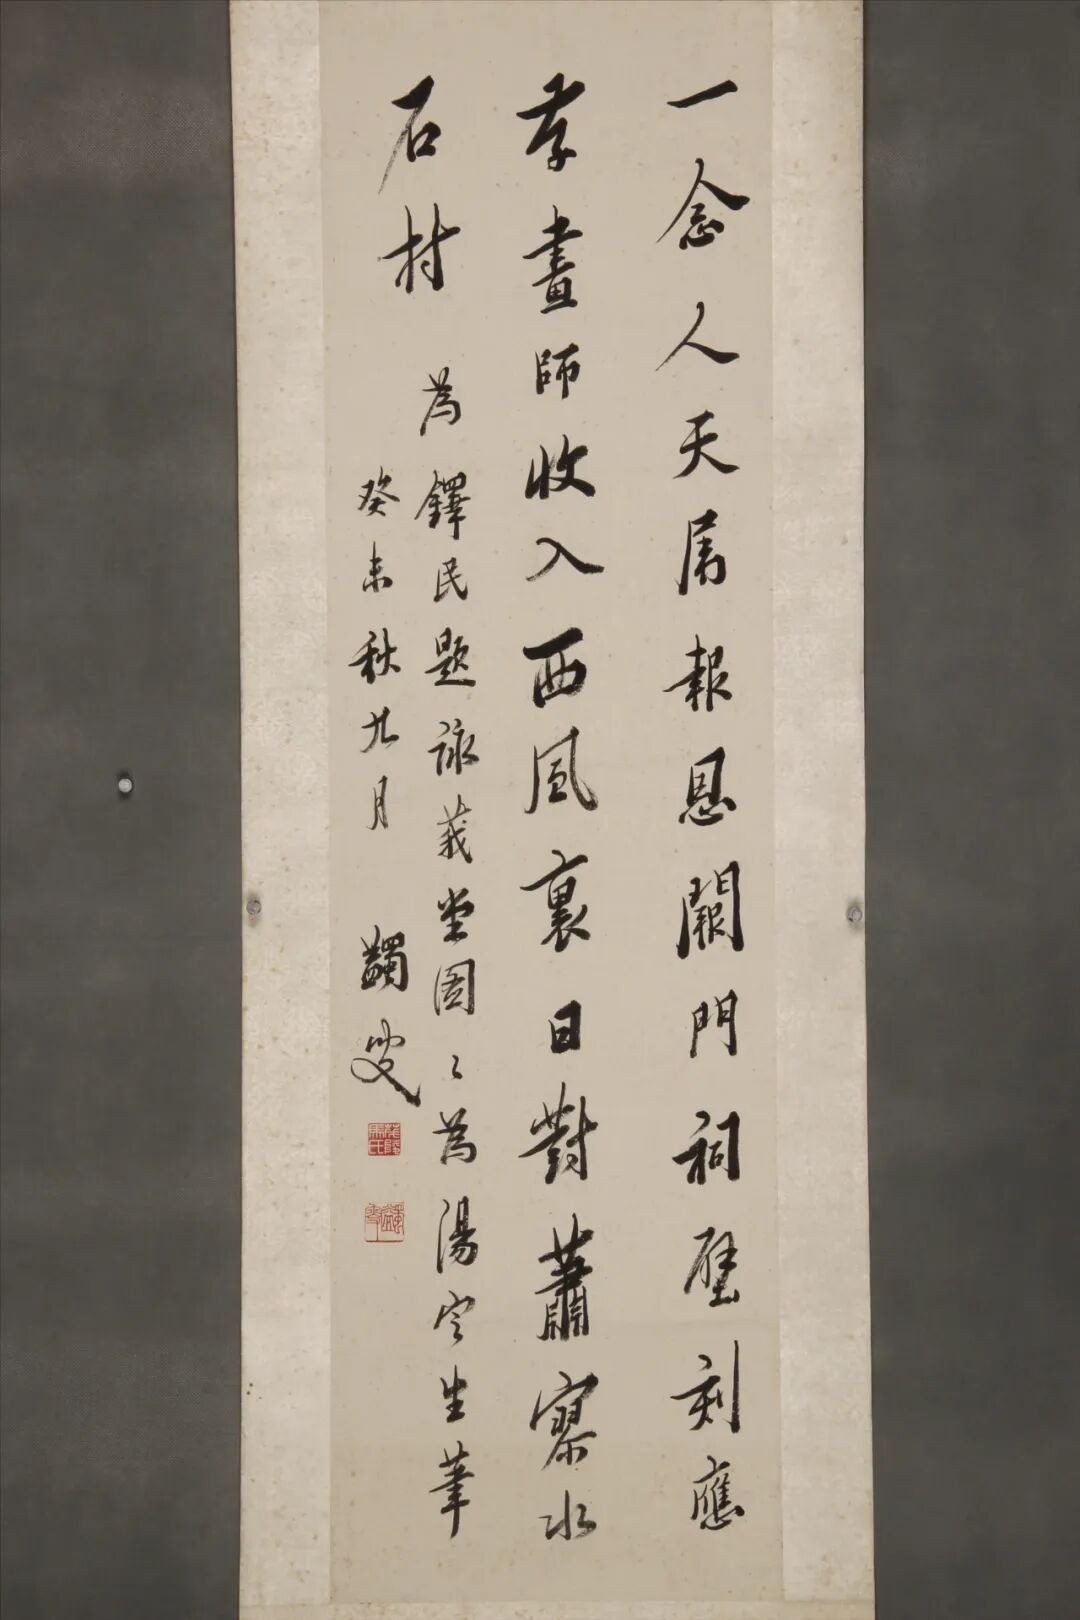 一念人天属報恩闕門祠壁刻應
存畫師收入西風裏日對蕭寥水
石村
為鐸民題詠莪堂圖〻為湯定生筆
癸未秋九月
蠲叟